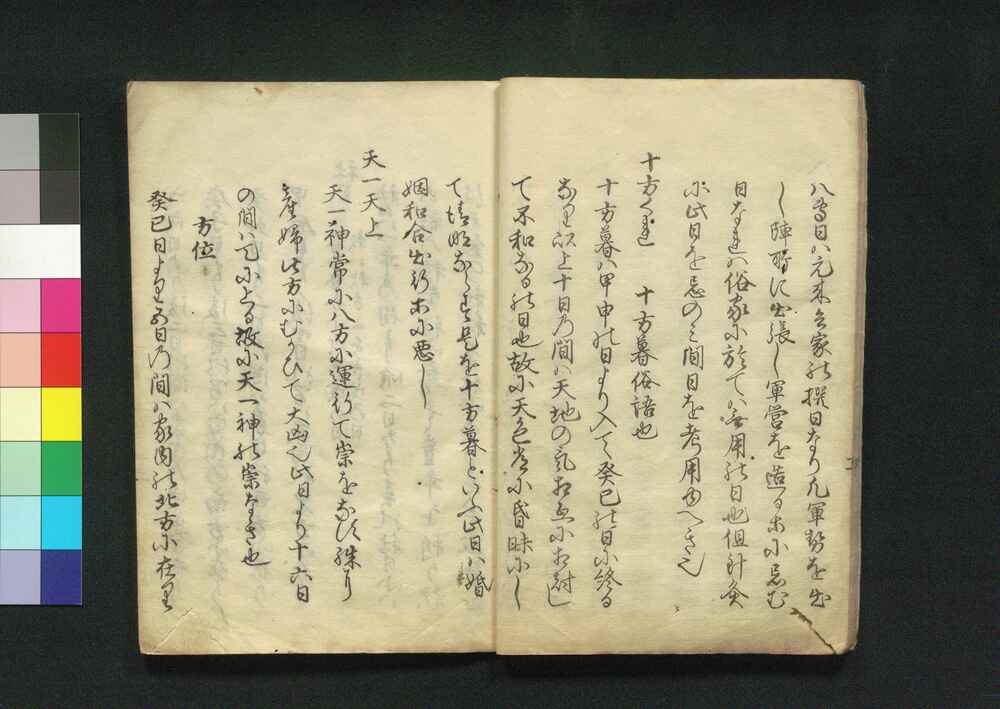 八専日ハ元来兵家の撰日なり凡軍勢を出
し陣所に出張し軍営を造る等に忌む
日なれハ俗家に於てハ無用の日也但針灸
に此日を忌のミ間日を考用ゆへき也
十方くれ　十方暮俗語也
十方暮ハ甲申の日より入て癸巳の日に終る
なり以上十日の間ハ天地の気相忌に相尅し
て不和なるの日也故に天色常に昏昧にし
て晴明ならす是を十方暮といふ此日ハ婚
姻和合出行等に悪し
天一天上
天一神常に八方に運行て祟をなす殊り
産婦此方にむかひて大凶也此日より十六日
の間ハ天に上る故に天一神の祟なき也
方位
癸巳日より五日の間ハ家内の北方に在り